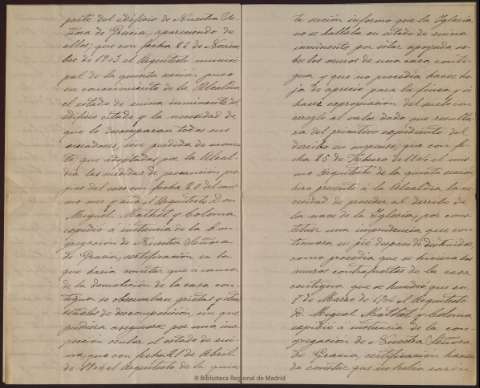 parte del edificio de Nuestra Se-
ñora de Gracia, apareciendo de
ellos; que con fecha 26 de Noviem-
bre de 1903 el Arquitecto munici-
pal de la quinta sección puso
en conocimiento de la Alcaldía
el estado de ruina inminente del
edificio citado y la necesidad de
que lo desocuparan todos sus
moradores, sin pérdida de momen-
to; que adoptadas por la Alcal-
día las medidas de precaución pro-
pias del caso con fecha 28 del mis-
mo mes y año, el Arquitecto Don
Miguel Mathet y Coloma
expidió a instancia de la Con-
gregación de Nuestra Señora
de Gracia, certificación en la
que hacía constar que a causa
de la demolición de la casa con-
tigua se observaban grietas y otras
señales de descomposición, sin que
pudiera asegurar por una ins-
pección ocular el estado de rui-
na; que con fecha 21 de Abril
de 1904 el Arquitecto de la quin-
ta sección informó que la Iglesia
no se hallaba en estado de ruina
inminente por estar apoyada so-
bre los muros de una casa conti-
gua, y que no procedía hacer ho-
ja de aprecio para la finca y sí
hacer apropiación del suelo con
arreglo al valor dado que resulta-
ría del primitivo expediente del
derecho en ; que con fe-
cha 25 de Febrero de 1906 el mis-
mo Arquitecto de la quinta sección
hizo presente a la Alcaldía, la ne-
cesidad de proceder al derribo de
la nave de la Iglesia, por cons-
tituir una imprudencia que con-
tinuara en pié después de derribadas,
como procedía que se hiciera los
muros contrafuertes de la casa
contigua que se hundió; que en
8 de Marzo de 1906 el Arquitecto
D. Miguel Mathet y Coloma
expidió a instancia de la con-
gregación de Nuestra Señora
de Gracia, certificación hacien-
do constar que no había varia-
© Biblioteca Regional de Madrid